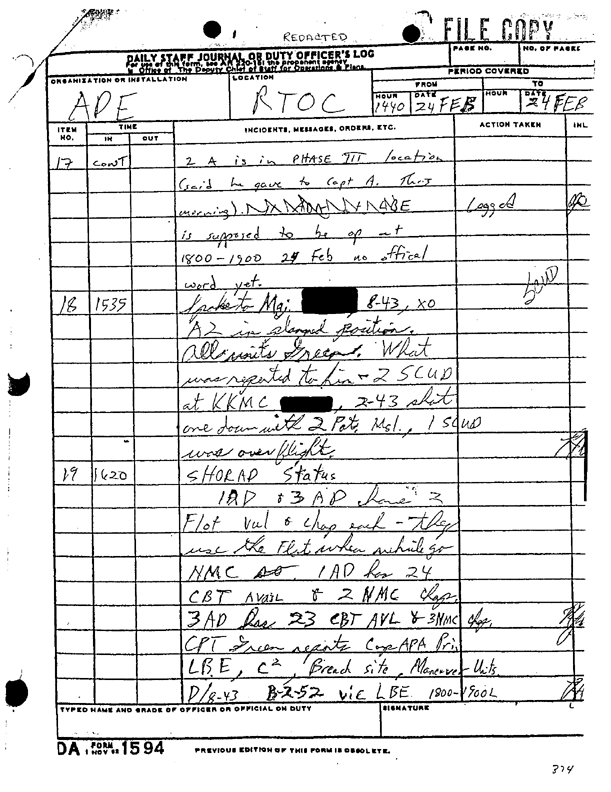 REDACTED
FILE COPY
DAILY STAFF JOURNAL OR DUTY OFFICER'S LOG
For use of this form, see AR 220-15; the proponent agency
is Office of The Deputy Chief of Staff for Operations & Plans.
PAGE NO. NO. OF PAGES
ORGANIZATION OR INSTALLATION LOCATION PERIOD COVERED
FROM TO
HOUR DATE HOUR DATE
ADE RTOC 1440 24 FEB 24 FEB
ITEM NO. TIME INCIDENTS, MESSAGES, ORDERS, ETC. ACTION TAKEN INL
IN OUT
17 CONT 2 A is in PHASE III location
(said he gave to Capt A. This
morning). Logged
is supposed to be op at
1800-1900 24 Feb no offical
word yet.
SCUD
18 1535 Spoke to Maj. 8-43, XO
A2 in position.
All units Green. What
was reported to him - 2 SCUD
at KKMC, 2-43 shot
one down with 2 Pat. Msl., 1 SCUD
was overflight.
19 1620 SHORAD Status
1AD & 3 AD have 2
Flot Vul & Chap each - they
use the Flot when vehicle go
NMC 1AD has 24
CBT AVAIL & 2 NMC chap.
3AD has 23 CBT AVL & 3NMC chap.
CPT Green reports Corps APA Pri
LBE, C², Breach site, Maneuver Units
D/8-43 B-2-52 vic LBE 1800-1900L
TYPED NAME AND GRADE OF OFFICER OR OFFICIAL ON DUTY SIGNATURE
DA FORM 1594
PREVIOUS EDITION OF THIS FORM IS OBSOLETE.
374